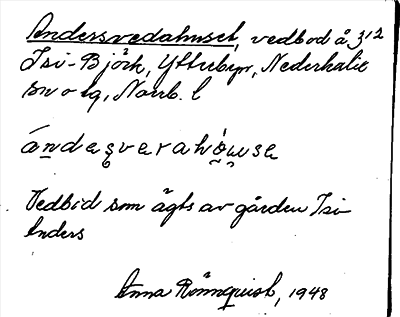 Andersvedahuset, vedbod å 3¹²
Isi-Björk, Ytterbyn, Nederkalix
sn o tg, Norrb. l
ándesverahòuse
Vedbod som ägts av gården Isi-
Anders
Anna Rönnquist, 1948